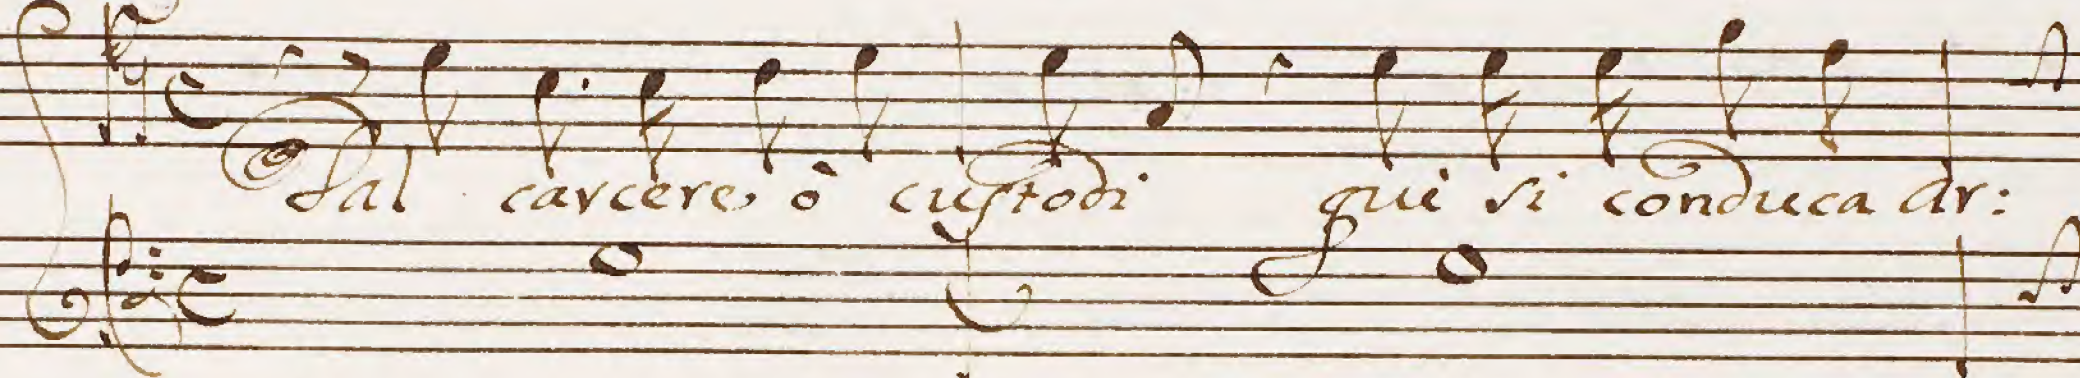 Dal carcere ò custodi qui si conduca Ar: